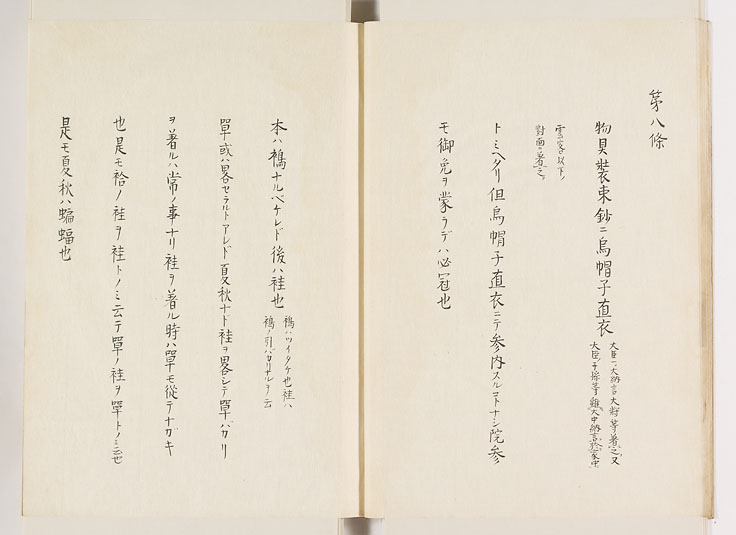 第八條
物具裝束鈔ニ烏帽子直衣
大臣、大納言大將等着之又
大臣子孫等雖大中納言於家中
雲客以下ノ
對面ニ着之
トミヘタリ但烏帽子直衣ニテ参内スルコトナシ院参
モ御免ヲ蒙ラデハ必冠也
本ハ褠ナルベケレド後ハ袿也
褠ハツイタケ也袿ハ
褠ノ引バカリナルヲ云
單或ハ畧セラルトアレド夏秋ナド袿ヲ畧シテ單バカリ
ヲ着ルハ常ノ事ナリ袿ヲ着ル時ハ單モ從テナガキ
也是モ袷ノ袿ヲ袿トノミ云テ單ノ袿ヲ單トノミ云也
是モ夏秋ハ蝙蝠也